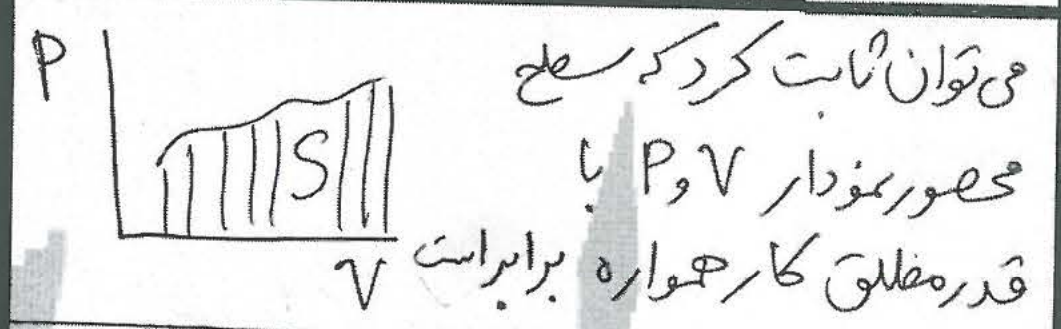 می‌توان ثابت کرد که سطح
محصور نمودار V و P با
قدر مطلق کار همواره برابر است
P
S
V